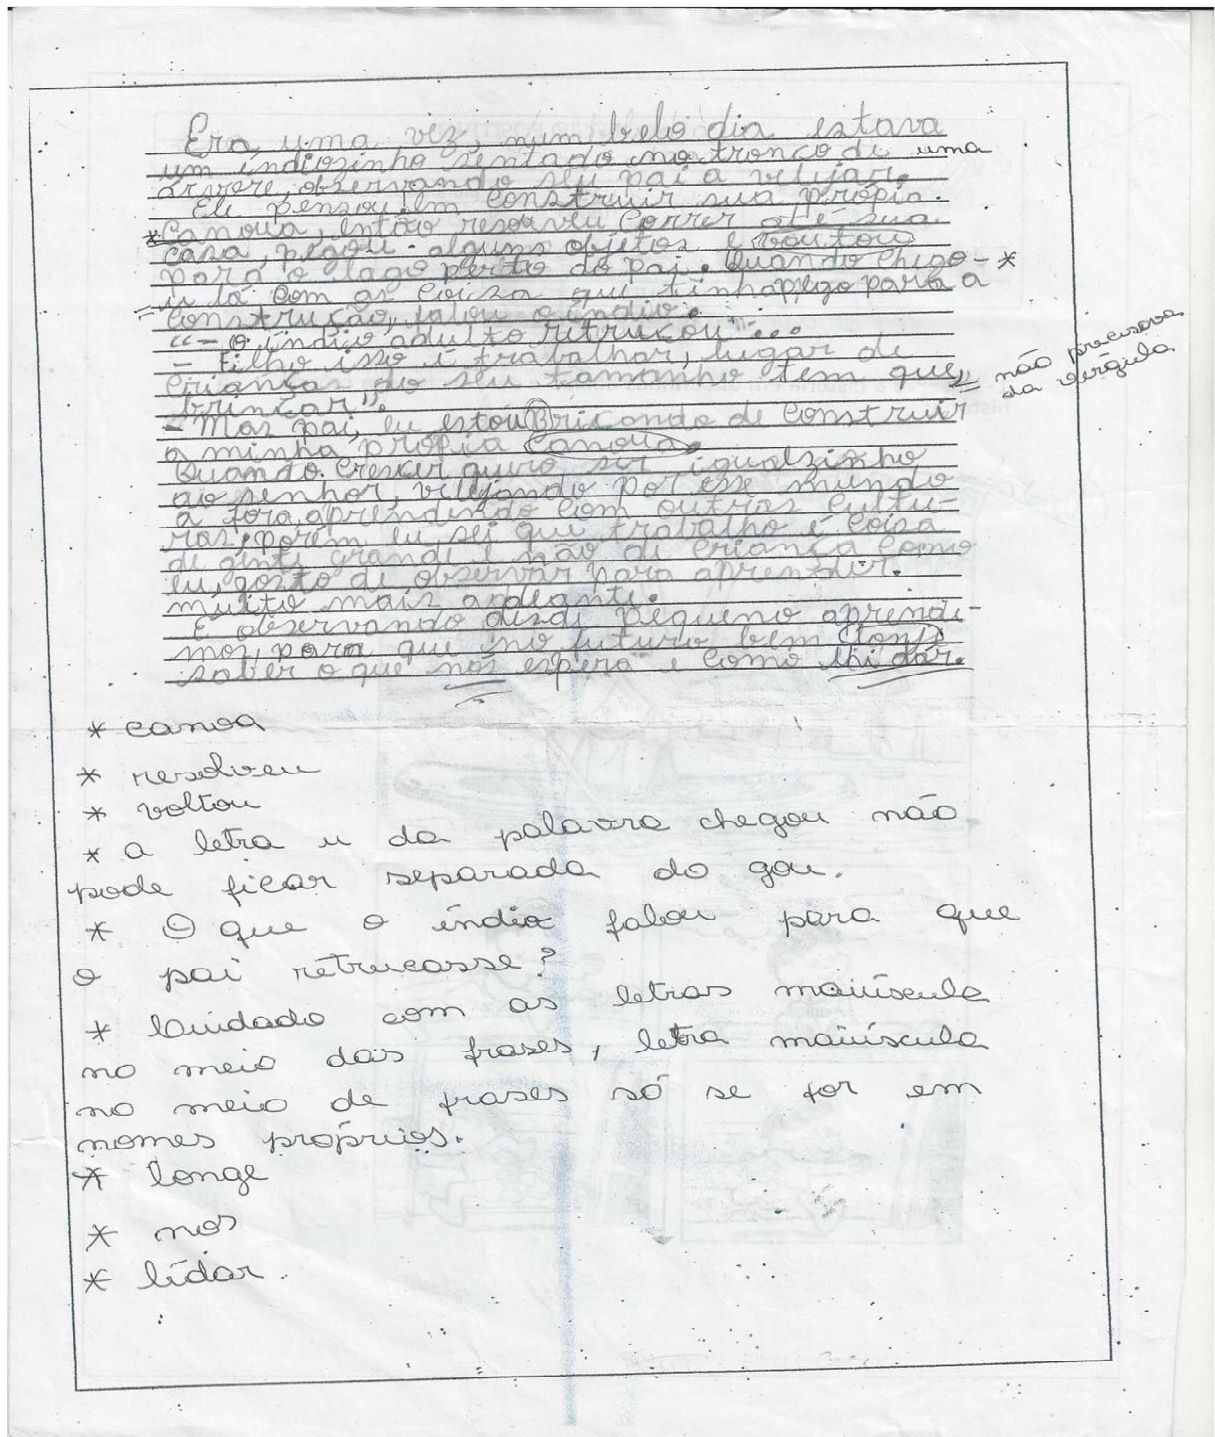 Era uma vez, num belo dia estava
um indiozinho sentado no tronco de uma
árvore, observando seu pai a velejar.
Ele pensou em Construir sua própia.
*Canoua, então resouveu Correr até sua
casa, pegou alguns objetos e voutou
para o lago perto do pai. Quando Chego- *
u lá com as Coisa que tinha pego para a
Construção, falou o índio:
"- O índio adulto retrucou"...
- Filho isso é trabalhar, lugar de
Crianças do seu tamanho tem que,
brincar".
não precisava
da vírgula
- Mas pai, eu estou Bricando de Construir
a minha própia Canoua.
Quando Crescer quero ser igualzinho
ao senhor, velejando por esse mundo
a fora, aprendendo Com outras Cultu-
ras, porem eu sei que trabalho é Coisa
de gente grande e não de Criança Como
eu, gosto de observar para aprender.
muito mais adeante.
E observando desde pequeno aprende-
mos, para que no futuro bem
saber o que nos espera e Como lhi dar.
* canoa
* resolveu
* voltou
* a letra u da palavra chegou não
pode ficar separada do gou.
* O que o índio falou para que
o pai retrucasse?
* Cuidado com as letras maiúscula
no meio das frases, letra maiúscula
no meio de frases só se for em
nomes próprios.
* longe
* nos
* lidar.